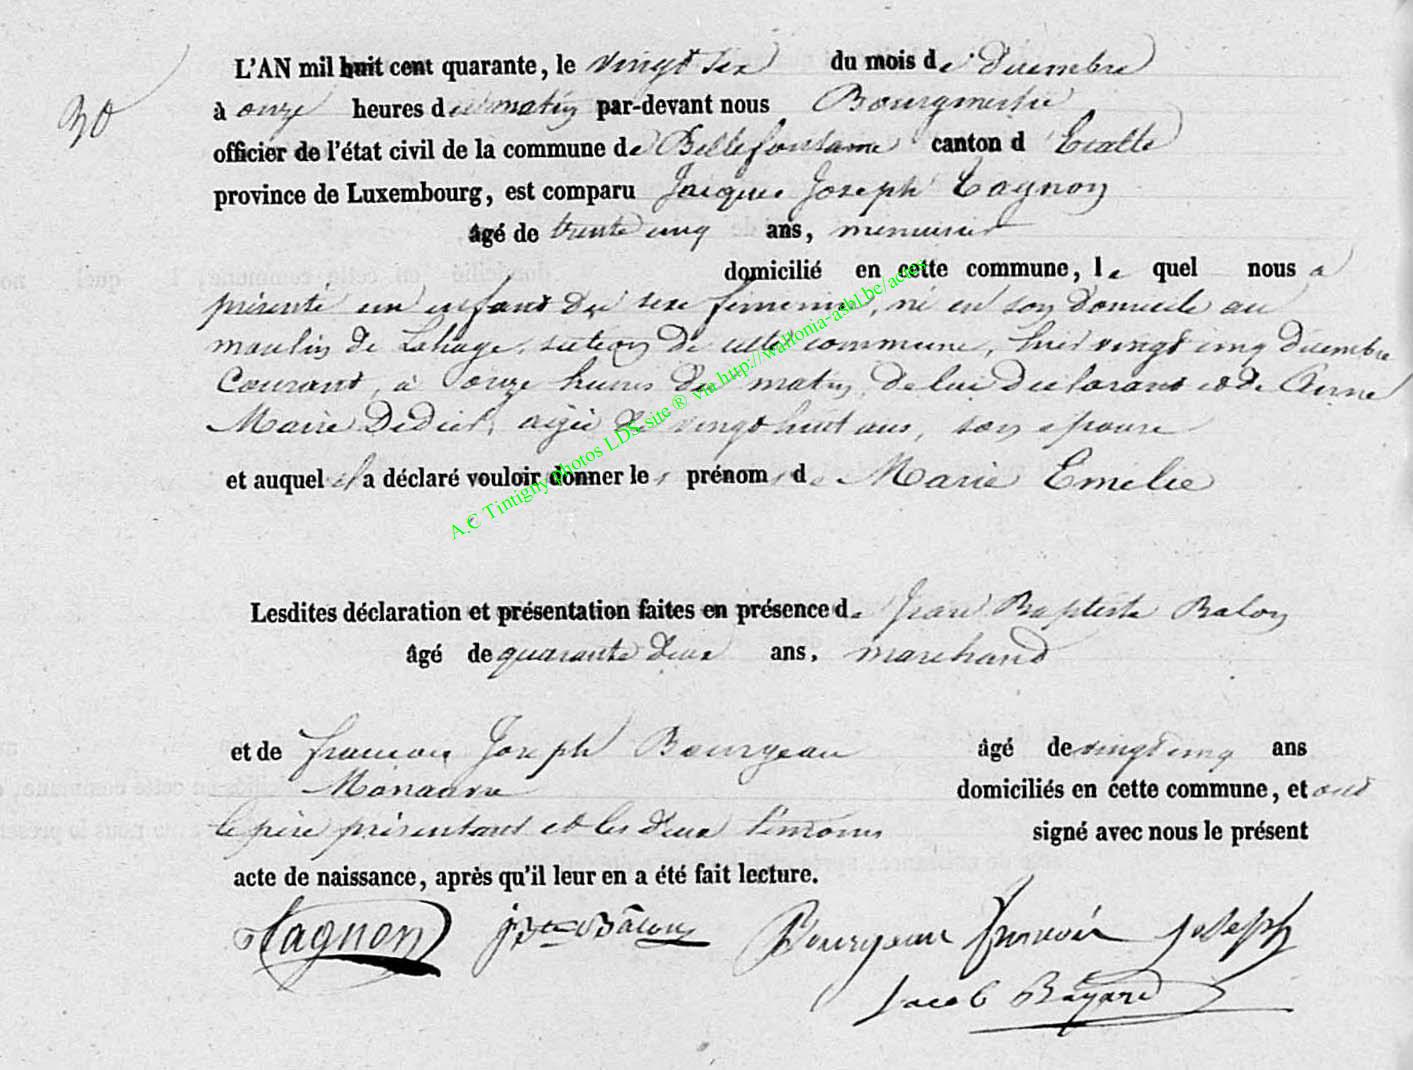 30
L'AN mil huit cent quarante, le vingt six du mois de décembre
à onze heures du matin par-devant nous Bourgmestre
officier de l'état civil de la commune de Bellefontaine canton d'Etalle
province de Luxembourg, est comparu Jacques Joseph Tagnon
âgé de trente cinq ans, menuisier
domicilié en cette commune, le quel nous a
présenté un enfant du sexe féminin, né en son domicile au
moulin de Lahage, section de cette commune, hier vingt cinq décembre
Courant, à onze heures du matin, de lui déclarant et de Anne
Marie Dediet, agée de vingt huit ans, son épouse
et auquel il a déclaré vouloir donner les prénoms de Marie Emélie
Lesdites déclaration et présentation faites en présence de Jean Baptiste Balon
âgé de quarante deux ans, marchand
et de françois Joseph Bourgeau âgé de vingt cinq ans
Manœuvre domiciliés en cette commune, et ont
le père présentant et les deux témoins signé avec nous le présent
acte de naissance, après qu'il leur en a été fait lecture.
Tagnon JBte Bâlon Bourgeau françois Joseph
Jacob Bayard
A.C Tintigny photos LDS site ® via http://wallonia-asbl.be/actes